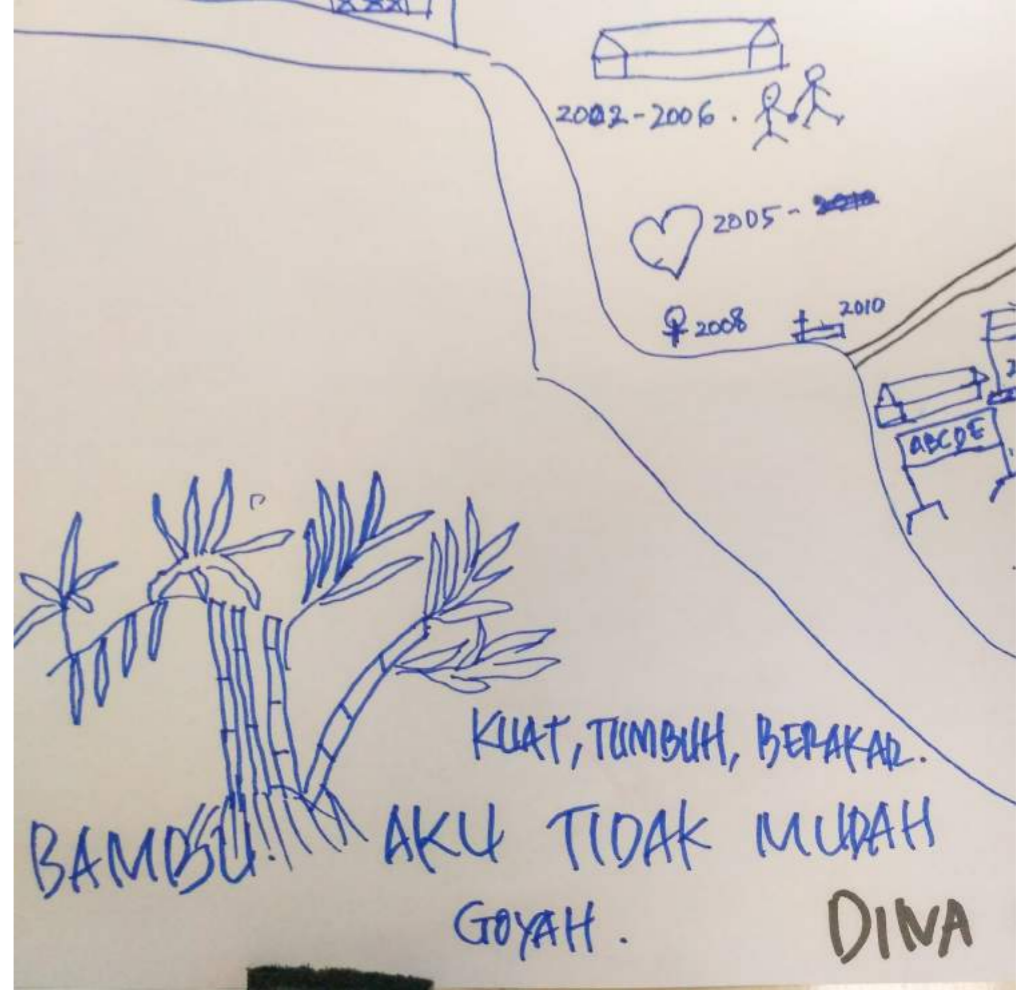 2002-2006.
2005-
2008
2010
ABCDE
KUAT, TUMBUH, BERAKAR.
BAMBU. AKU TIDAK MUDAH
GOYAH.
DINA